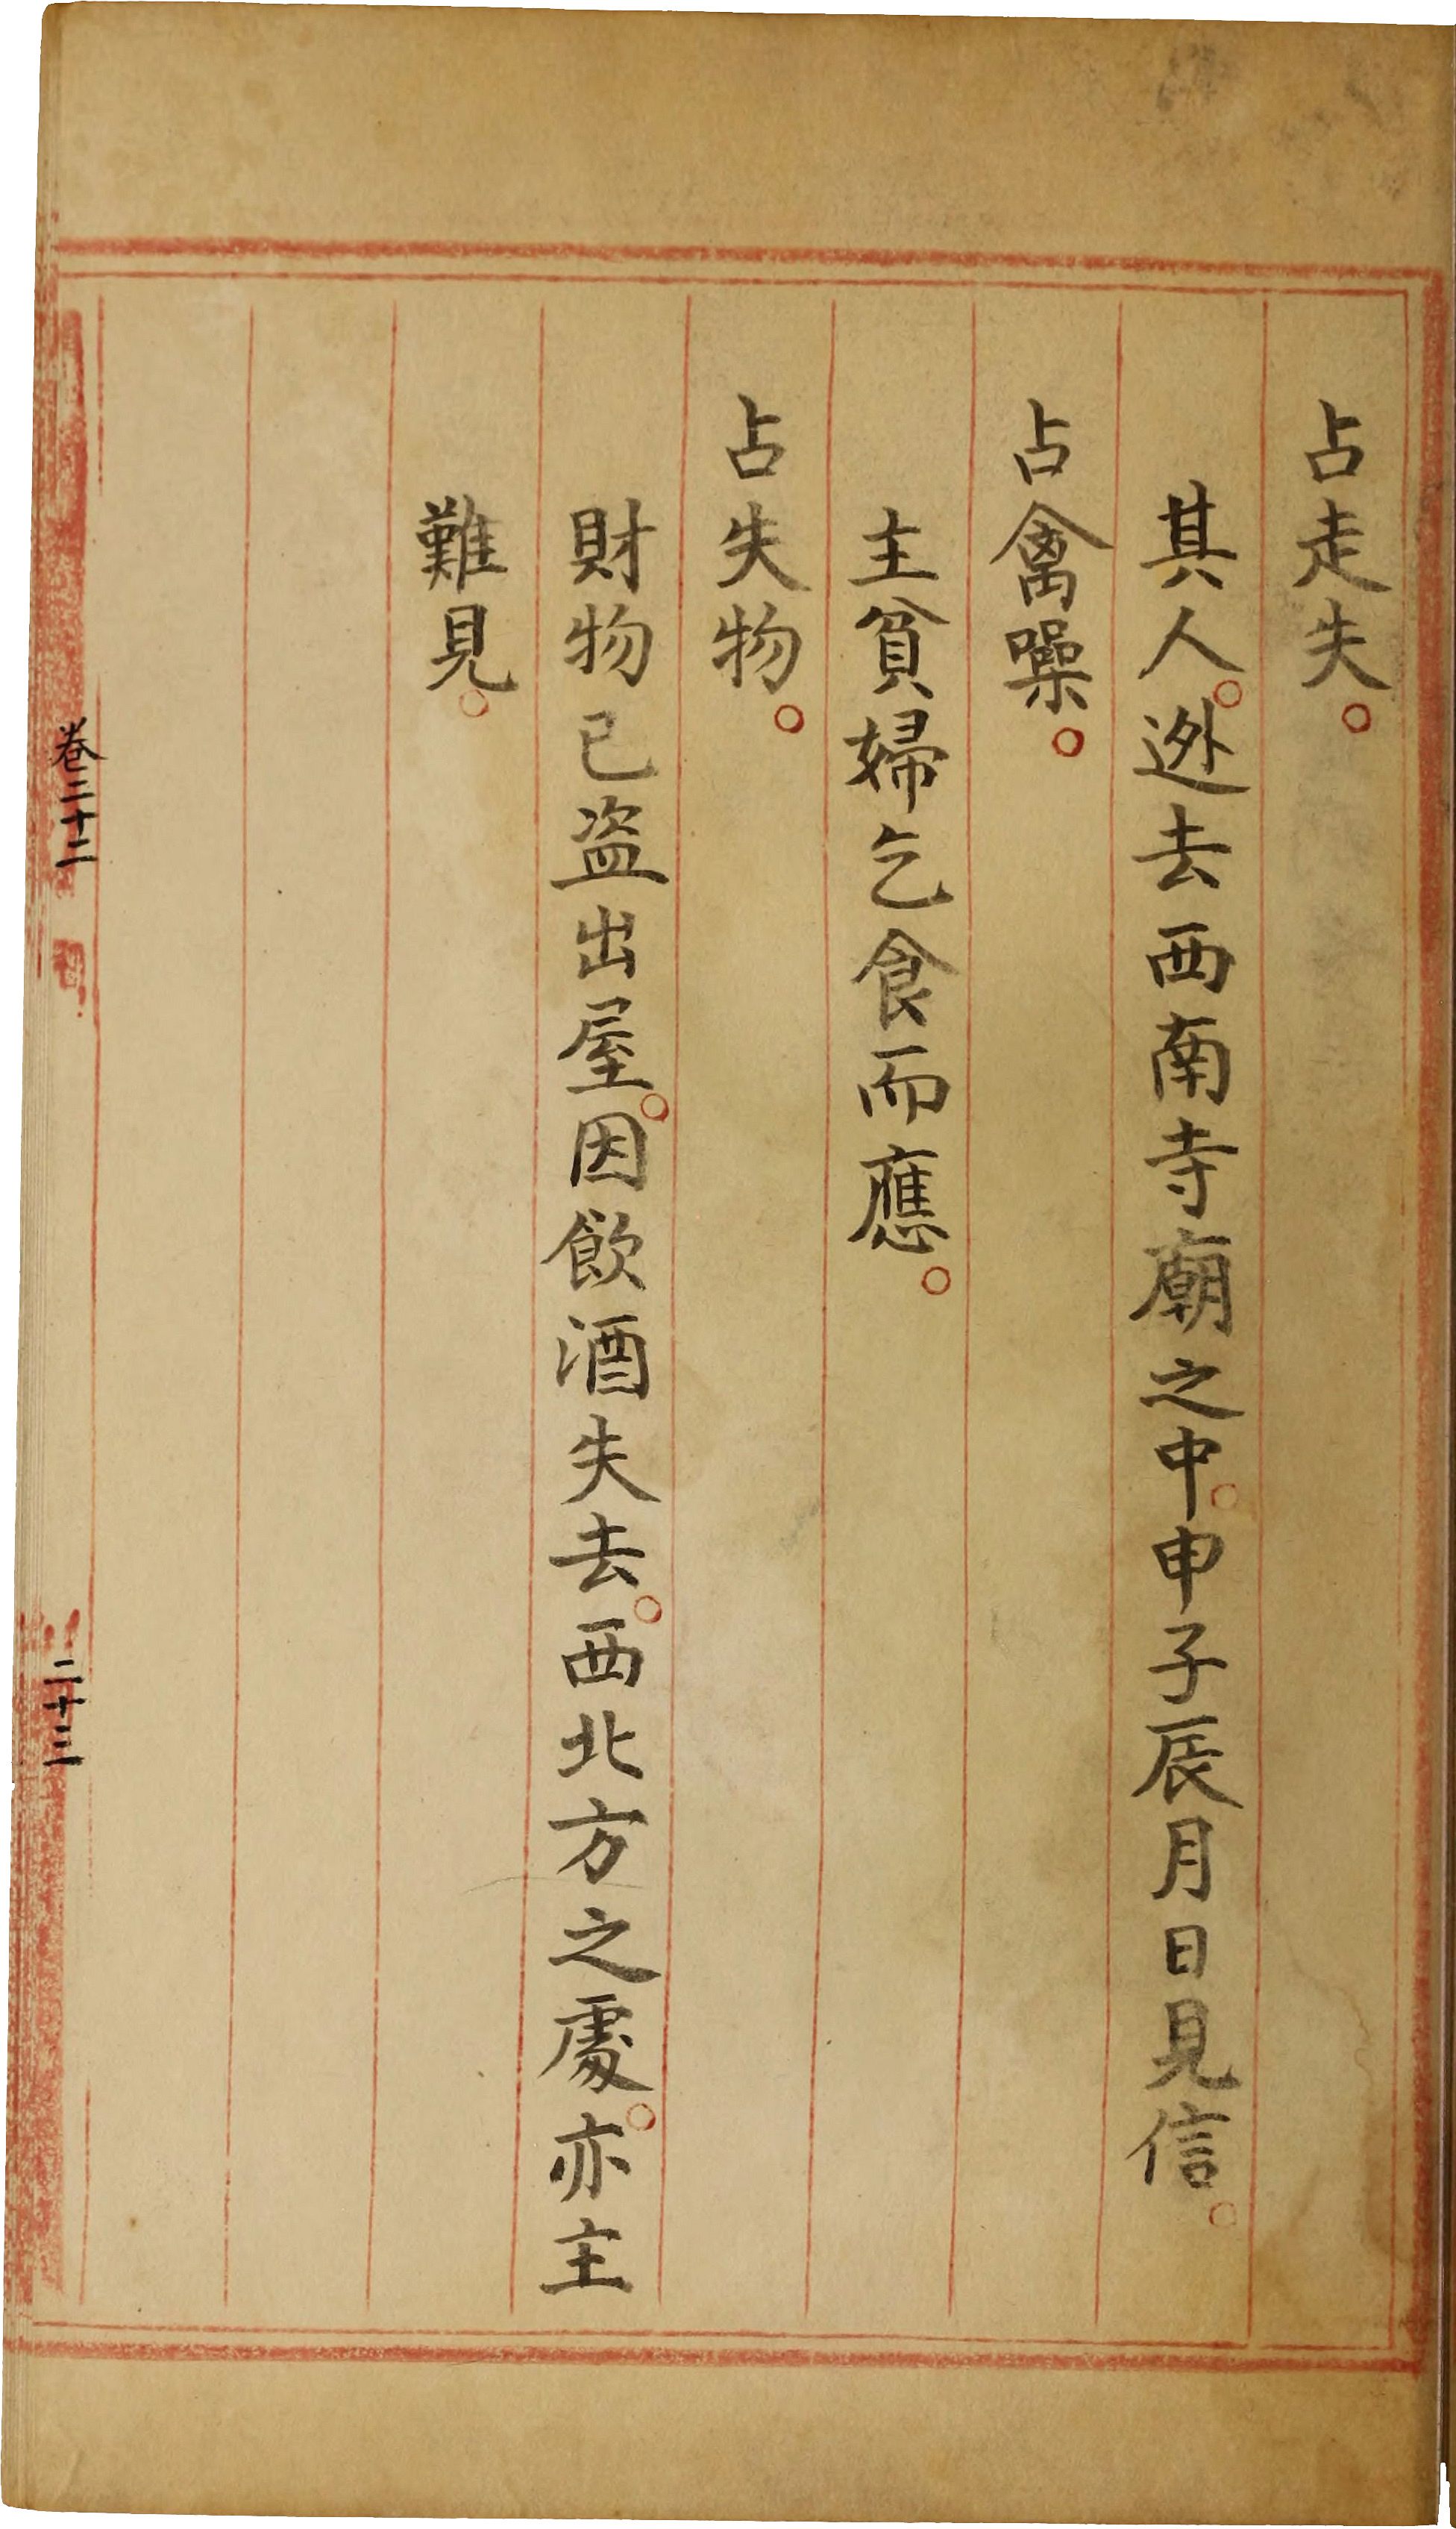 占走失。
其人。逃去西南寺廟之中。申子辰月日見信。
占禽噪。
主貧婦乞食而應。
占失物。
財物已盗出屋。因飲酒失去。西北方之處。亦主
難見。
卷三十二
二十三